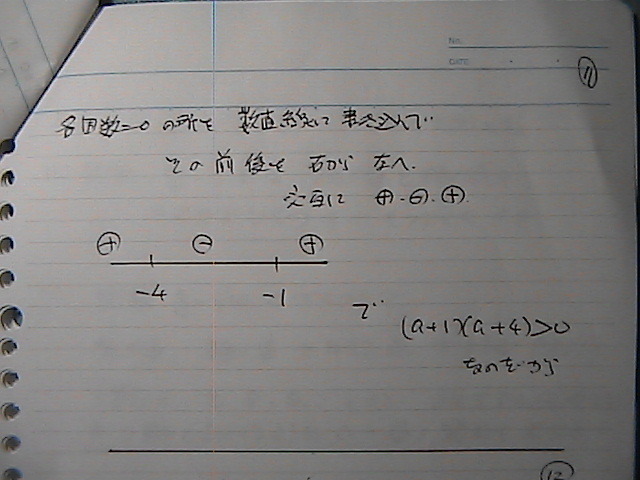 No.
DATE
⑪
各因数=0 の所を 数直線に 書き込んで
その前後を 右から 左へ.
交互に ⊕.⊖.⊕.
⊕ ⊖ ⊕
-4 -1
で
(a+1)(a+4)>0
なのだから
⑫